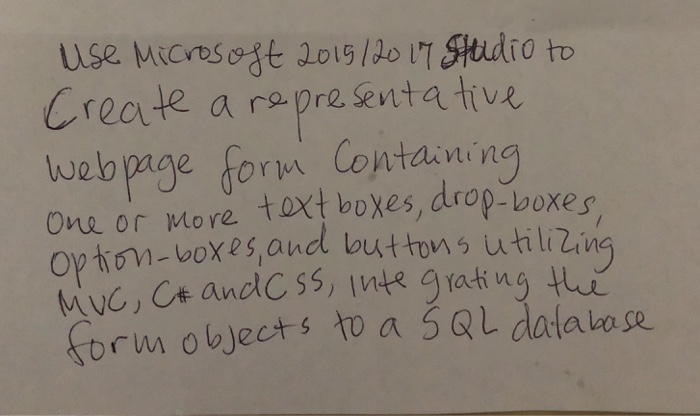 Use Microsoft 2015/2017 Studio to
Create a representative
webpage form Containing
one or more textboxes, drop-boxes,
option-boxes, and buttons utilizing
MVC, C# and CSS, integrating the
form objects to a SQL database